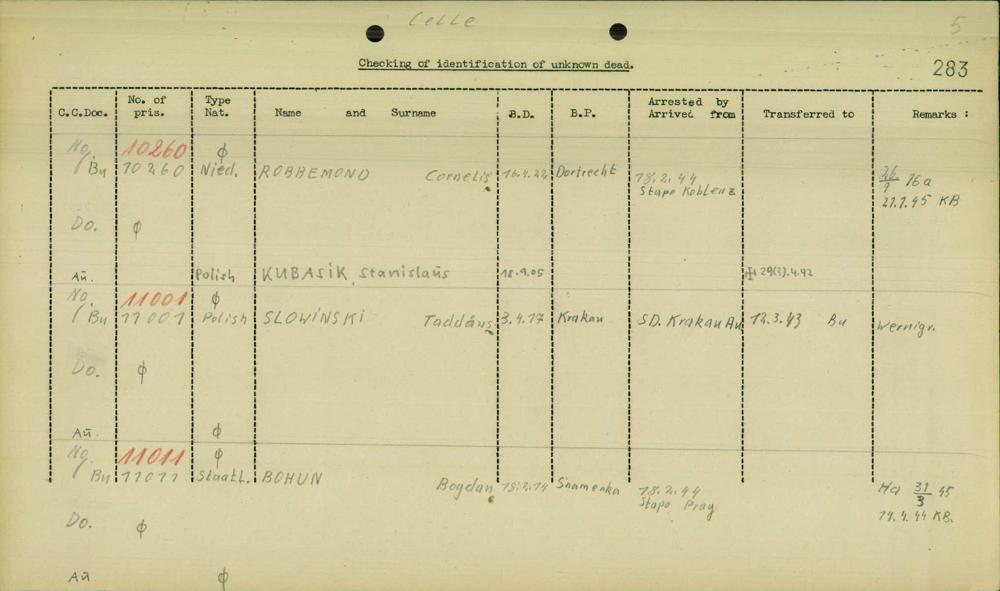 Celle 5
Checking of identification of unknown dead.
283
C.C.Doc. No. of pris. Type Nat. Name and Surname B.D. B.P. Arrested by Arrived from Transferred to Remarks :
No. 10260 ϕ
Bu 10260 Nied. ROBBEMOND Cornelis 16.4.22 Dortrecht 18.2.44 16a
Stapo Koblenz 21.1.45 KB
Do. ϕ
Au. Polish KUBASIK, Stanislaus 18.9.05 29(3).4.42
No. 11001 ϕ
Bu 11001 Polish SLOWINSKI Taddäus 3.4.17 Krakau SD. Krakau Au 12.3.43 Bu Wernigr.
Do. ϕ
Au. ϕ
No 11011 ϕ
Bu 11011 Staatl. BOHUN Bogdan 18.2.14 Snamenka 18.2.44 Ha 31/3 45
Stapo Prag 14.4.44 KB.
Do. ϕ
Au. ϕ